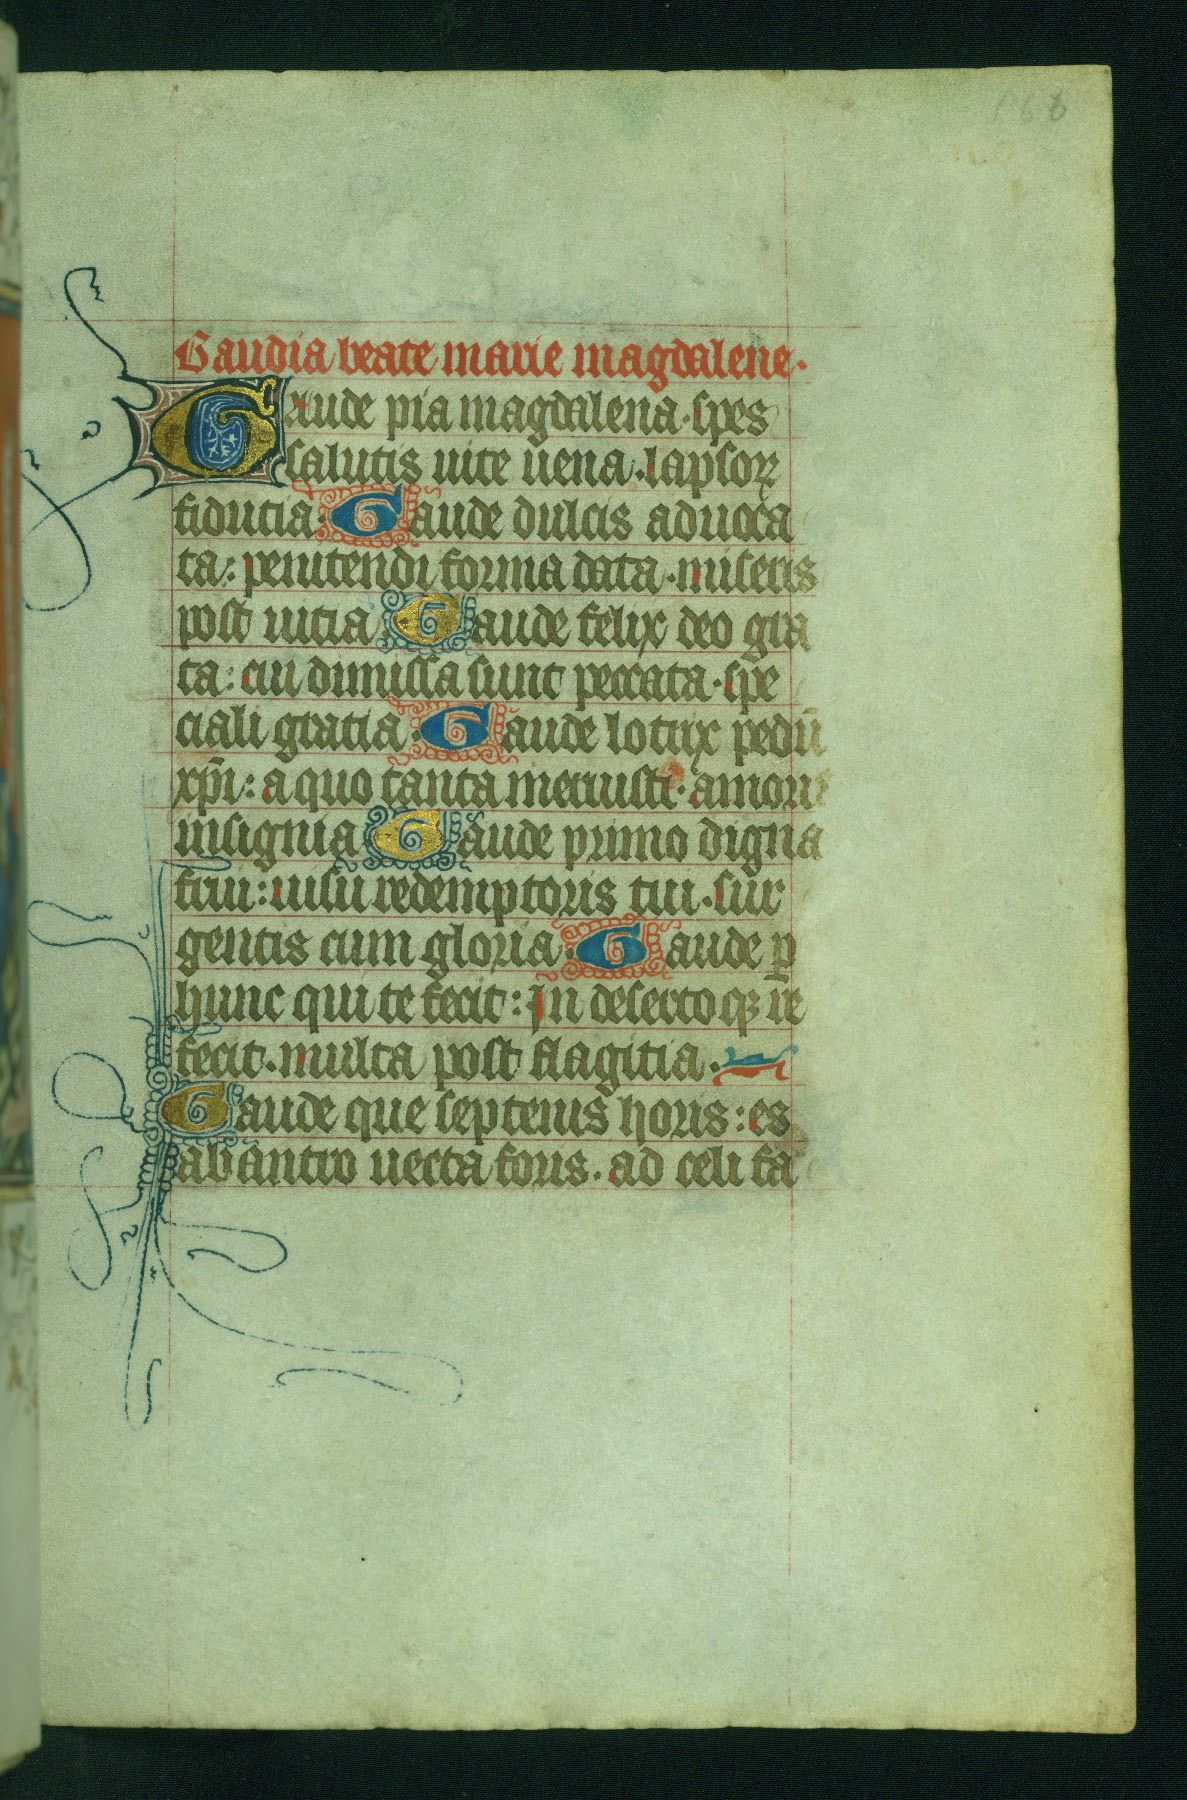 166
Gaudia beate marie magdalene.
Gaude pia magdalena. spes
salutis uite uena. lapsoꝝ
fiducia. Gaude dulcis aduoca
ta: penitendi forma data. miseris
post uicia. Gaude felix deo gra
ta: cui dimissa sunt peccata. spe
ciali gratia. Gaude lotrix pedū
xp̄i: a quo tanta meruisti. amoris
insignia. Gaude primo digna
frui: uisu redemptoris tui. sur
gentis cum gloria. Gaude ꝑ
hunc qui te fecit: In deserto qꝫ re
fecit. multa post flagitia.
Gaude que septenis horis: es
ab antro uecta foris. ad celi fa